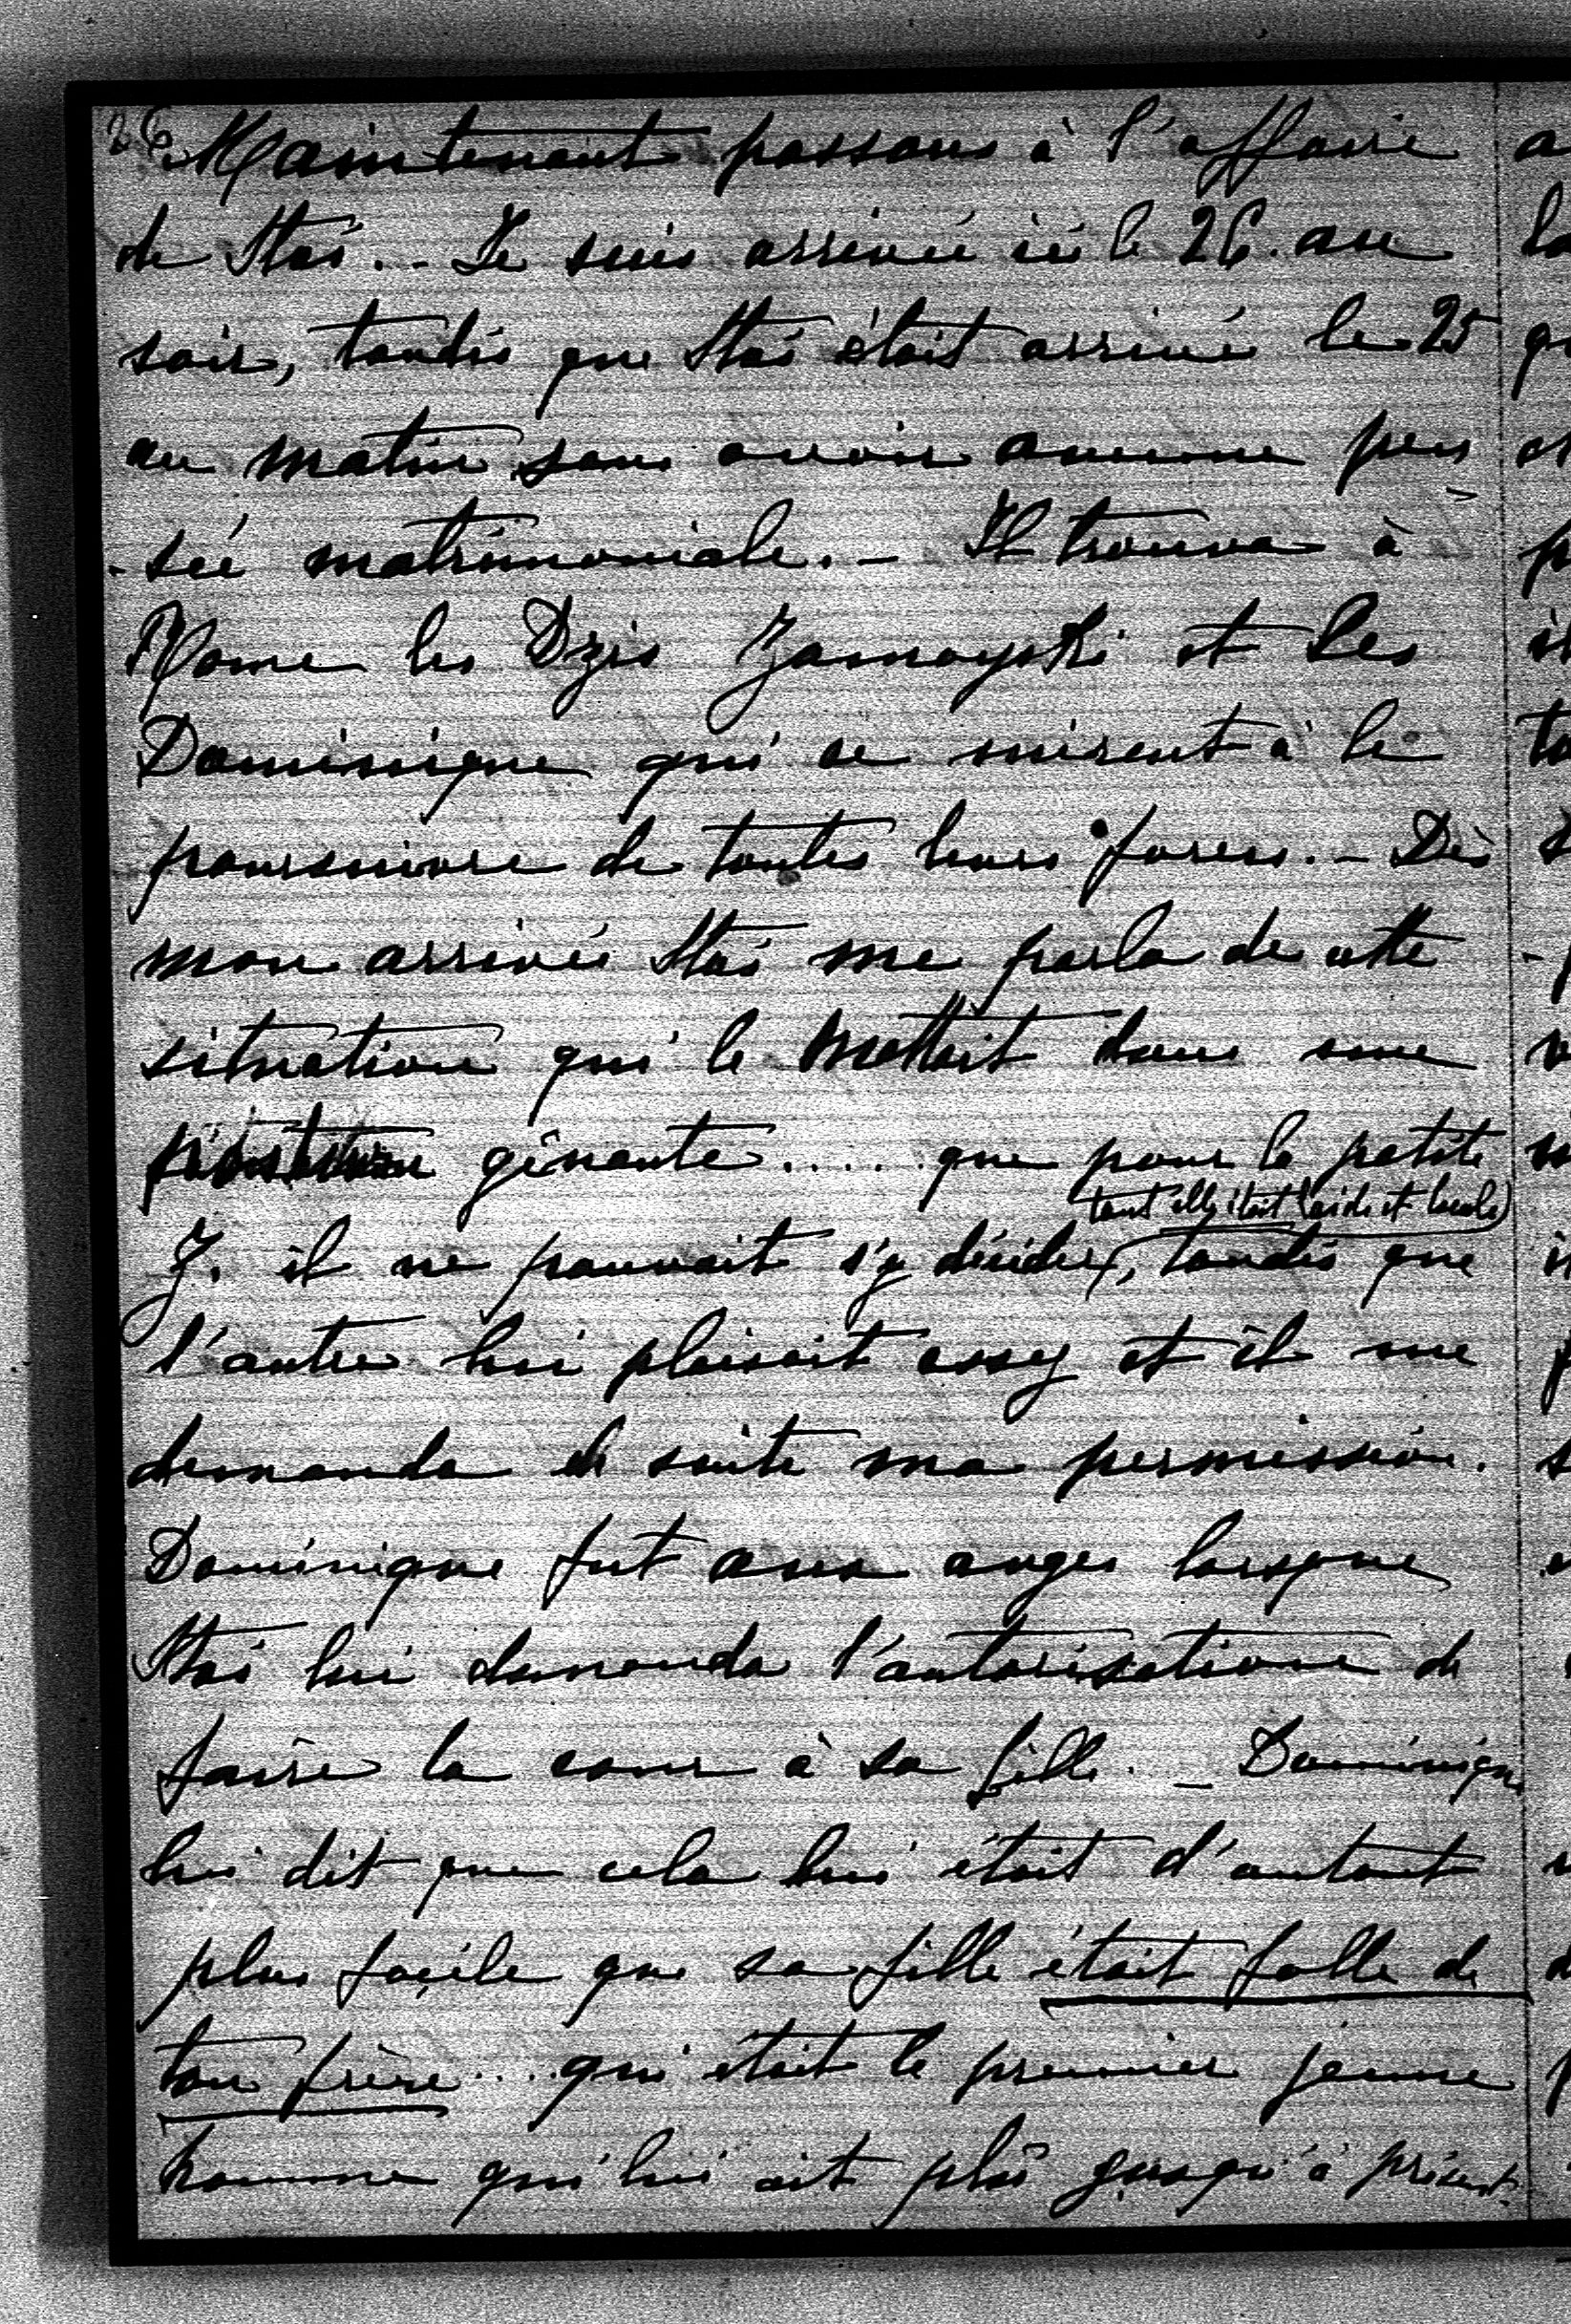 26. Maintenant passons à l'affaire
de Staś. - Je suis arrivée ici le 26. au
soir, tandis que Staś était arrivé le 25
au matin sans avoir aucune pen
- sée matrimoniale. - Il trouva à
Rome les Dzis Zamoyski et les
Dominique qui se mirent à le
poursuivre de toutes leurs forces. - Dès
mon arrivée Staś me parla de cette
situation qui le mettait dans une
position gênante..... que pour la petite
tant elle était laide et
Z. il ne pouvait s'y décider, tandis que
l'autre lui plaisait assez et il me
demanda de suite ma permission.
Dominique fut aux anges lorsque
Staś lui demanda l'autorisation de
faire la cour à sa fille. - Dominique
lui dit que cela lui était d'autant
plus façile que sa fille était folle de
ton frère.... qui était le premier jeune
homme qui lui ait plû jusqu'à présent.